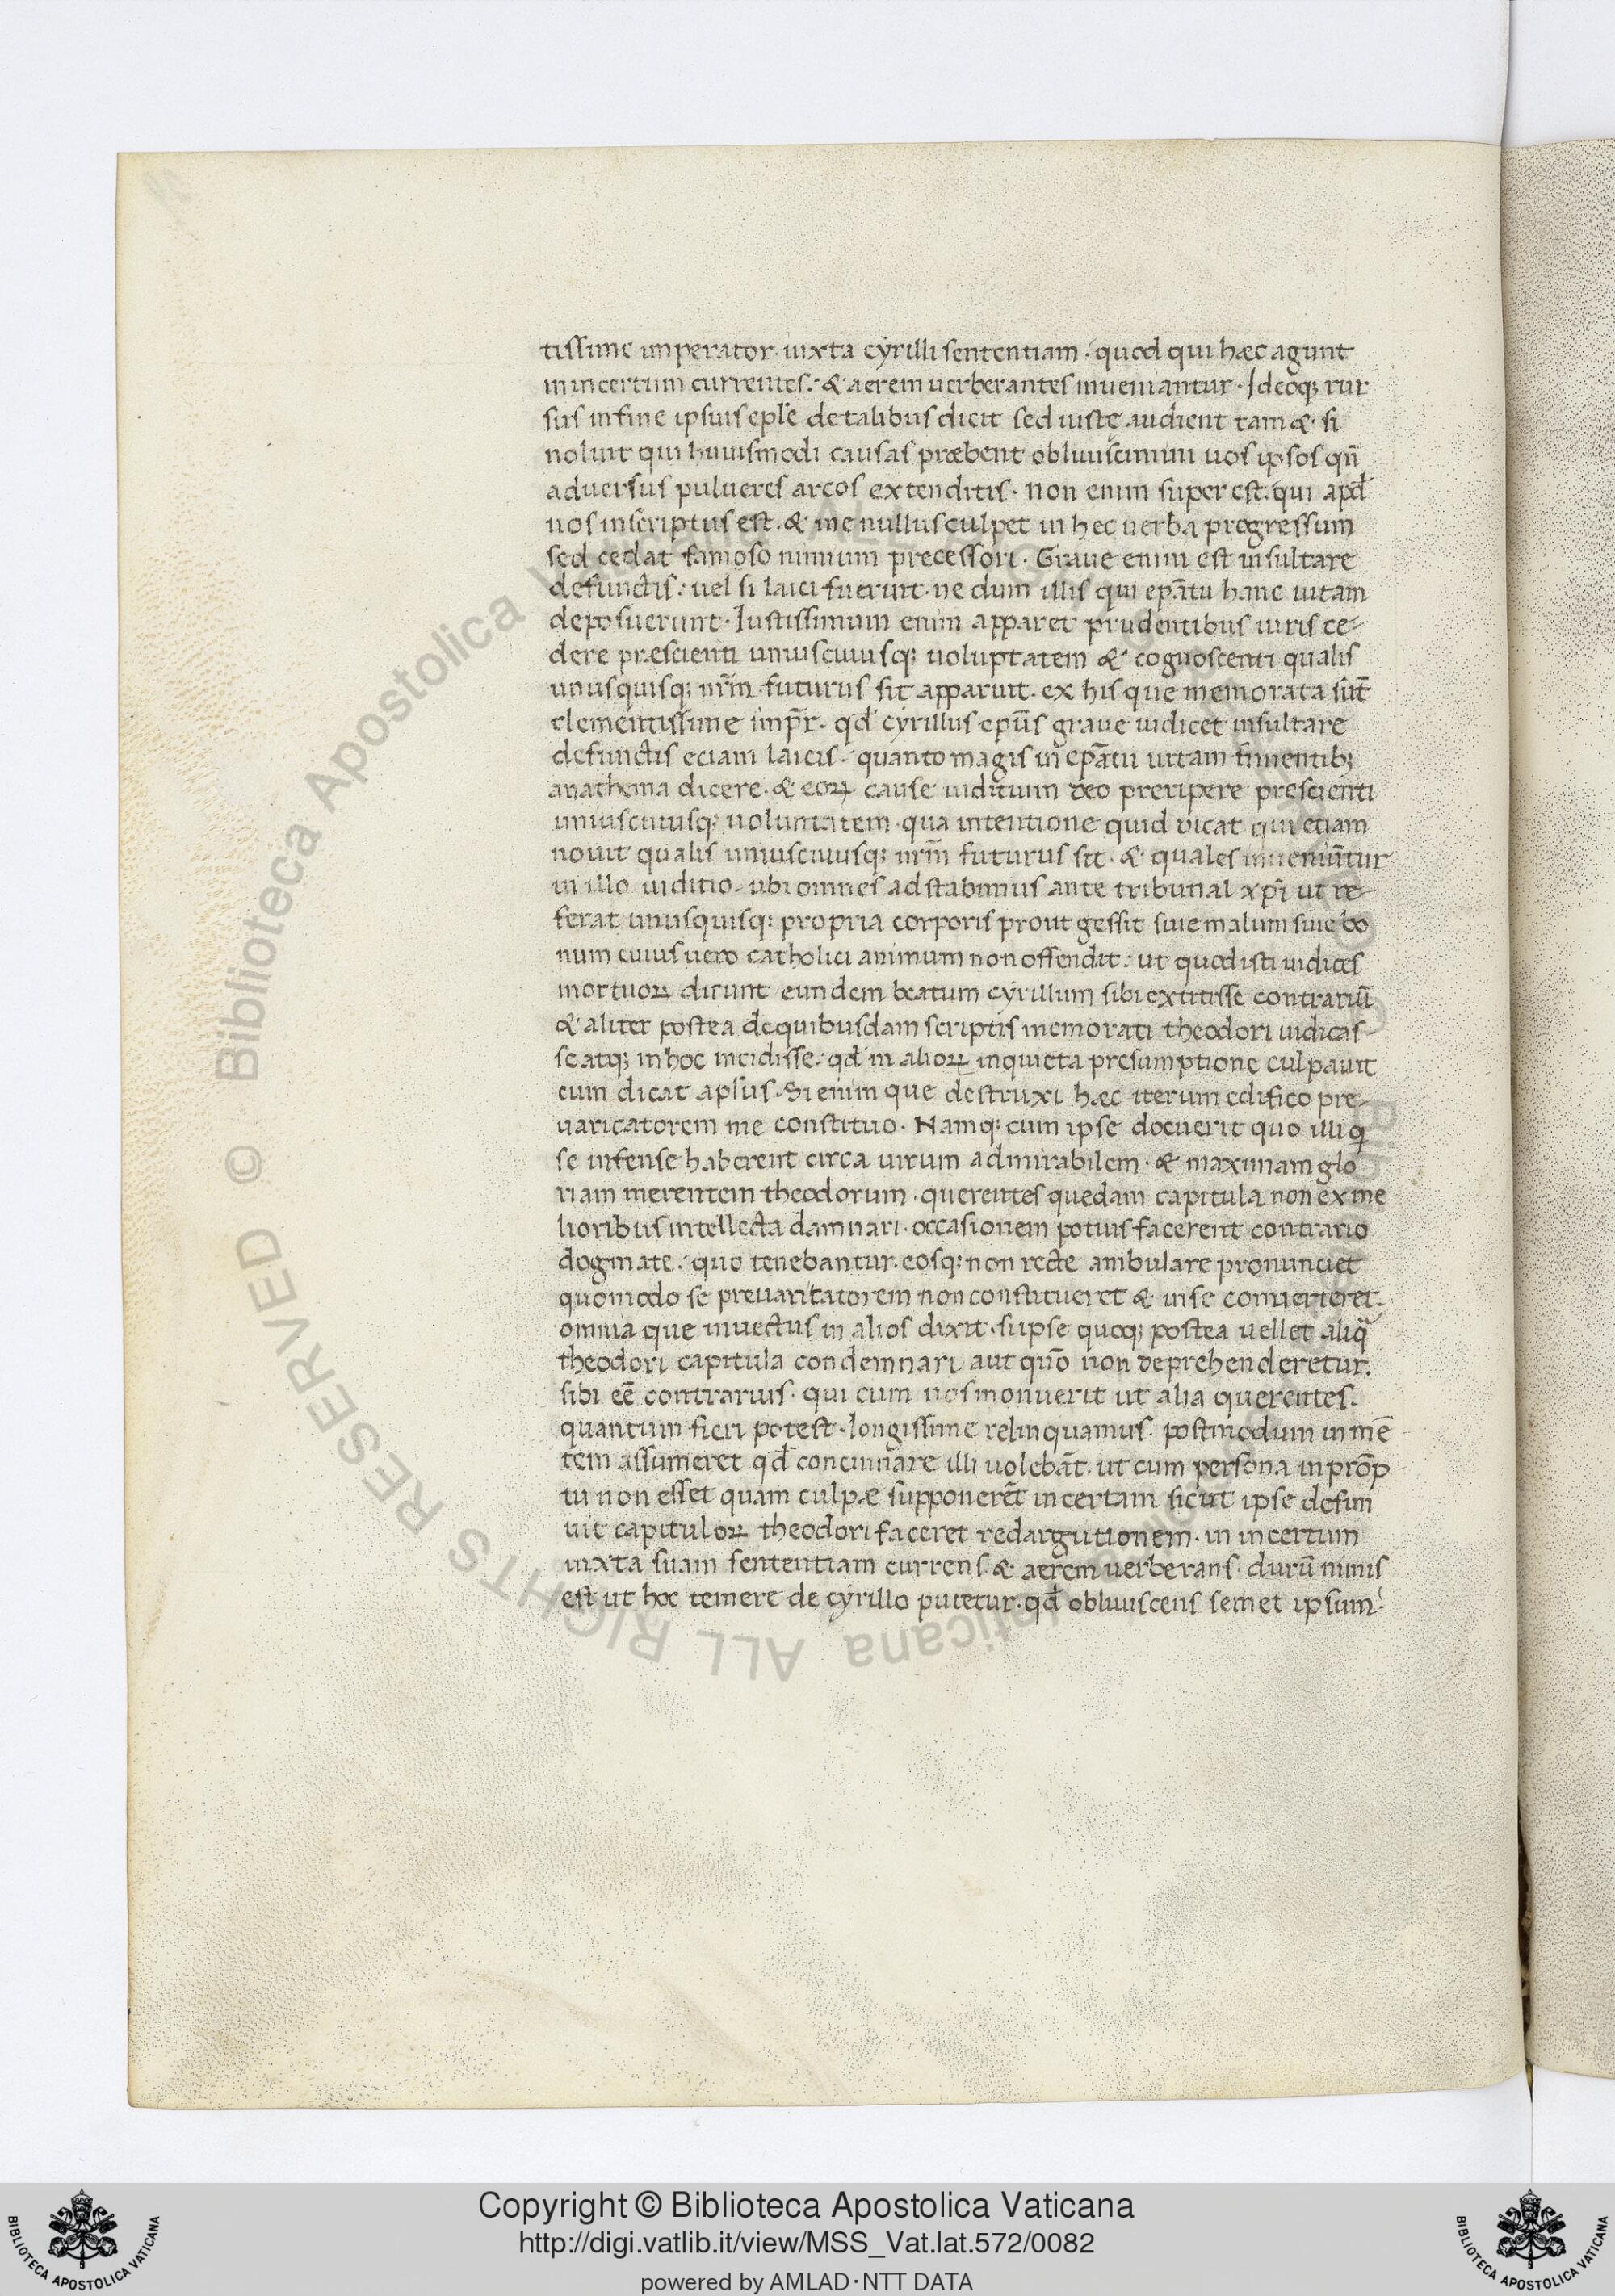 tissime imperator iuxta cyrilli sententiam · quod qui hæc agunt
in incertum currentes · & aerem uerberantes inueniantur · Ideoq; rur
sus in fine ipsius eple de talibus dicit sed iuste audient tam & si
noluit qui huiusmodi causas præbent obliuiscimini uos ipsos qn̄
aduersus pulueres arcos extenditis · non enim super est · qui apd
uos inscriptus est · & me nullus culpet in hec uerba progressum
sed cedat famoso nimium precessori · Graue enim est insultare
defunctis · uel si laici fuerint · ne dum illis qui epātu hanc uitam
deposuerunt · Iustissimum enim apparet prudentibus iuris ce-
dere præscienti uniuscuiusq; uoluptatem & cognoscenti qualis
unusquisq; nr̄m futurus sit apparuit · ex his que memorata sūt
clementissime imp̄r · qd cyrillus ep̄us graue iudicet insultare
defunctis eciam laicis · quanto magis in epātu uitam finientib;
anathema dicere · & eoꝝ cause iuditium deo preripere prescienti
uniuscuiusq; uoluntatem · qua intentione quid dicat qui etiam
nouit qualis uniuscuiusq; nr̄m futurus sit · & quales inueniūtur
in illo iuditio · ubi omnes adstabimus ante tribunal xp̄i ut re-
ferat unusquisq; propria corporis prout gessit siue malum siue bo
num cuius uero catholici animum non offendit · ut quod isti iudices
mortuoꝝ dicunt eundem beatum cyrillum sibi extitisse contrariū
& aliter postea de quibusdam scriptis memorati theodori iudicas-
se atq; in hoc incidisse · qd in alioꝝ inquieta presumptione culpauit
cum dicat aplus · Si enim que destruxi hæc iterum edifico pre-
uaricatorem me constituo · Namq; cum ipse docuerit quo illi q
se infense haberent circa uirum admirabilem · & maximam glo
riam merentem theodorum · querentes quedam capitula non ex me
lioribus intellecta damnari · occasionem potius facerent contrario
dogmate · quo tenebantur · eosq; non recte ambulare pronunciet
quomodo se preuaritatorem non constitueret & in se conuerteret
omnia que inuectus in alios dixit · si ipse quoq; postea uellet aliq
theodori capitula condemnari aut quō non deprehenderetur
sibi eē contrarius · qui cum nos monuerit ut alia querentes
quantum fieri potest · longissime relinquamus · postmodum in mē
tem assumeret qd concinnare illi uolebāt · ut cum persona in prōp
tu non esset quam culpæ supponerēt incertam sicut ipse defini
uit capituloꝝ theodori faceret redargutionem · in incertum
iuxta suam sententiam currens & aerem uerberans · durū nimis
est ut hoc temere de cyrillo putetur · qd obliuiscens semet ipsum
Copyright © Biblioteca Apostolica Vaticana
http://digi.vatlib.it/view/MSS_Vat.lat.572/0082
powered by AMLAD·NTT DATA
BIBLIOTECA APOSTOLICA VATICANA
BIBLIOTECA APOSTOLICA VATICANA
© Biblioteca Apostolica Vaticana ALL RIGHTS RESERVED